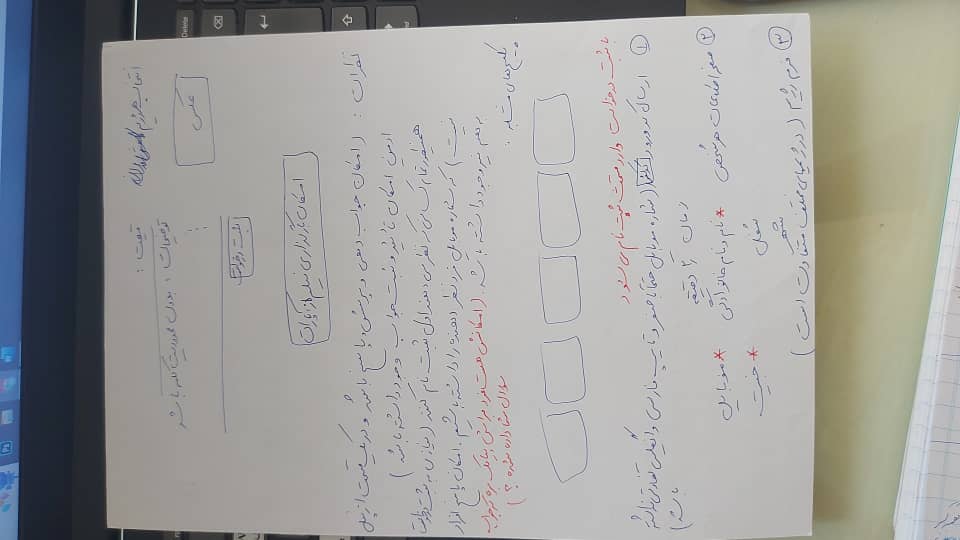 انتخاب هر رژیم
قیمت :
توضیحات : بدون محدودیت کلمه باشد
عکس
ثبت درخواست
امکان بارگذاری فیلم از آپارات
نظرات : ( امکان جواب دهی و پرسش و پاسخ باشد و در یک قسمت از پنل
ادمین امکان تائید و ثبت جواب وجود داشته باشد )
همینطور تمام کسانی که نظر می دهند اول ثبت نام کنند ( نیازی به ثبت درخواست
نیست ) که شماره موبایل فرد نظر دهنده را داشته باشیم . امکان پاسخ افراد
به هم نیز وجود داشته باشد . ( امکانش هست فرد براش پیامک بره که جواب
سوال شما داده شده ؟ )
پکیج های مشابه :
با ثبت درخواست وارد قسمت ثبت نام می شود
① ارسال کد ورود ( شماره موبایل حتما با صفر و تایپ فارسی و انگلیسی تفاوتی نداشته
باشد )
زمان ۲ دقیقه
② صفحه اطلاعات هر شخص * نام و نام خانوادگی * موبایل
شغل * جنسیت
شهر
③ فرم رژیم ( در رژیمهای مختلف متفاوت است )
Delete